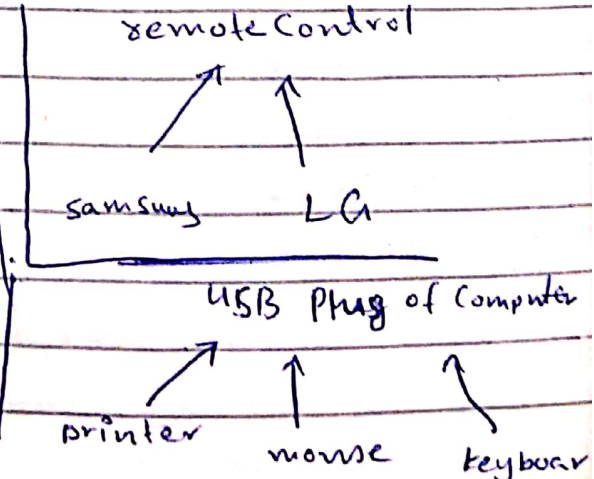 remote Control
samsung LG
USB Plug of Computer
printer mouse keyboar